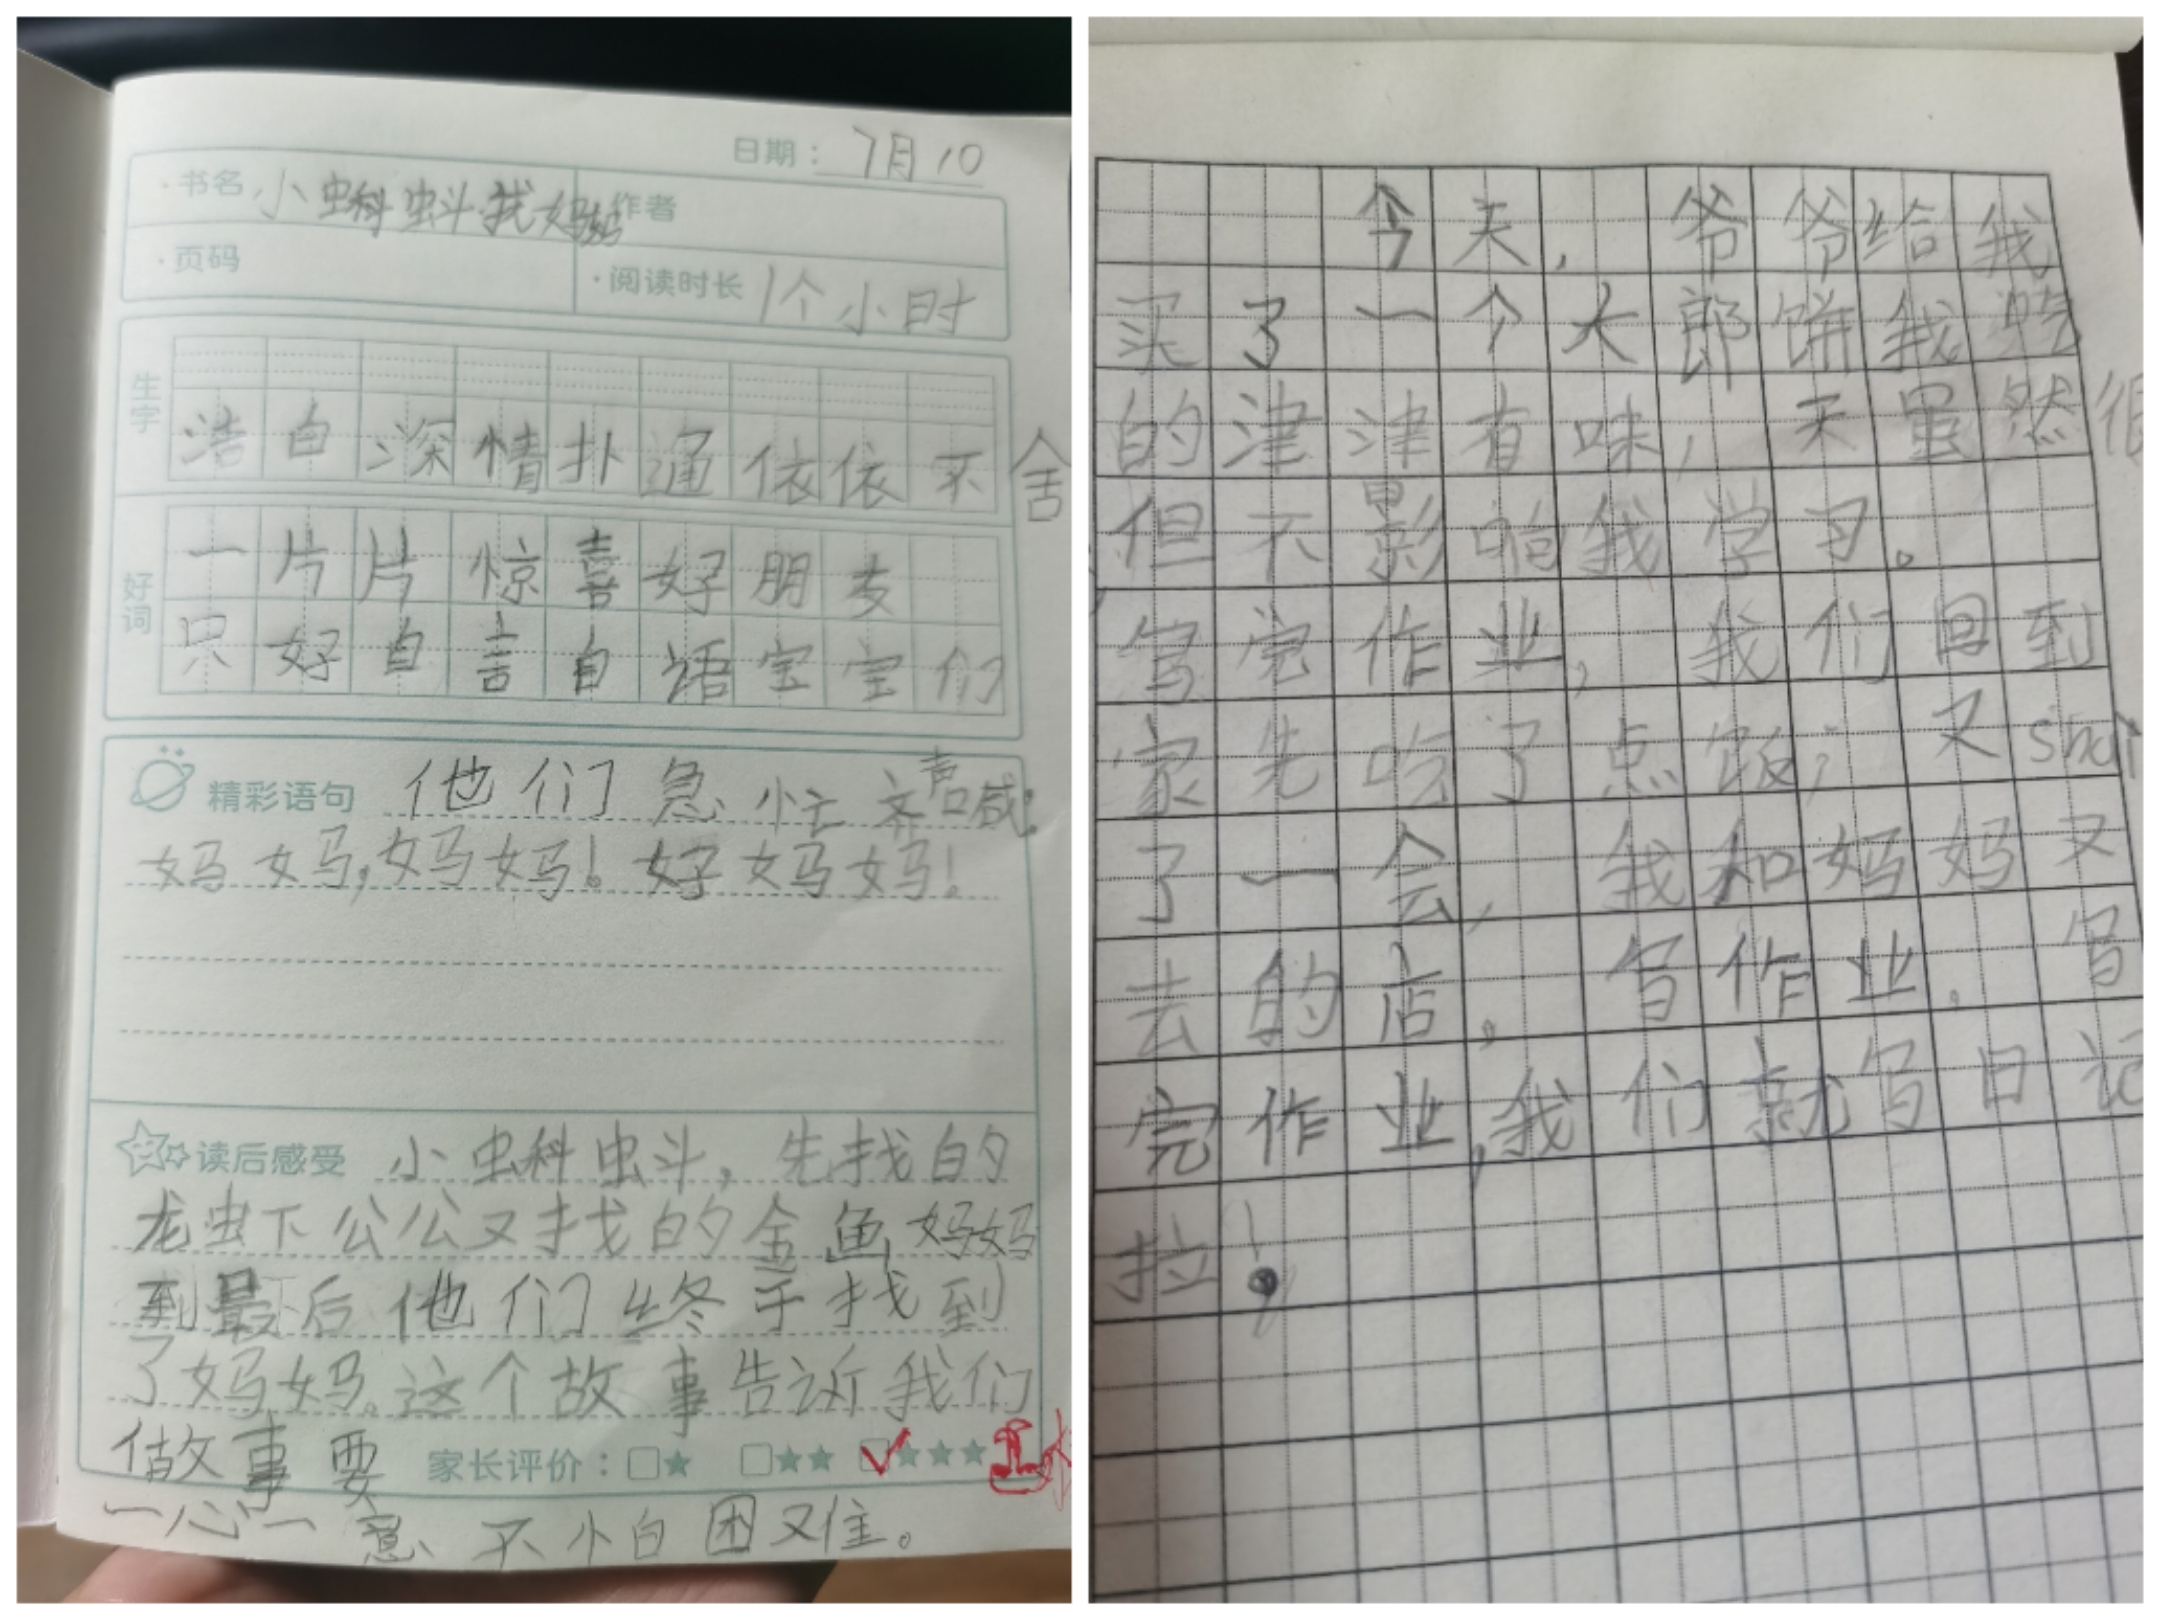 日期：7月10
·书名 小蝌蚪找妈妈 作者
·页码
·阅读时长 1个小时
生字
浩自深情扑通依依不舍
好词
一片片惊喜好朋友
只好自言自语宝宝们
精彩语句 他们急忙齐声喊:
妈妈,妈妈!好妈妈!
读后感受 小蝌蚪,先找的
龙虾公公又找的金鱼妈妈
到最后他们终于找到
了妈妈。这个故事告诉我们
做事要 家长评价：□★ □★★ □★★★
一心一意不怕困难。
今天,爷爷给我
买了一个大郎饼我
的津津有味,天虽然很
但不影响我学习。
写完作业,我们回到
家先吃了点饭,又shuì
了一会,我和妈妈又
去的店。写作业。写
完作业,我们就写日记
拉!